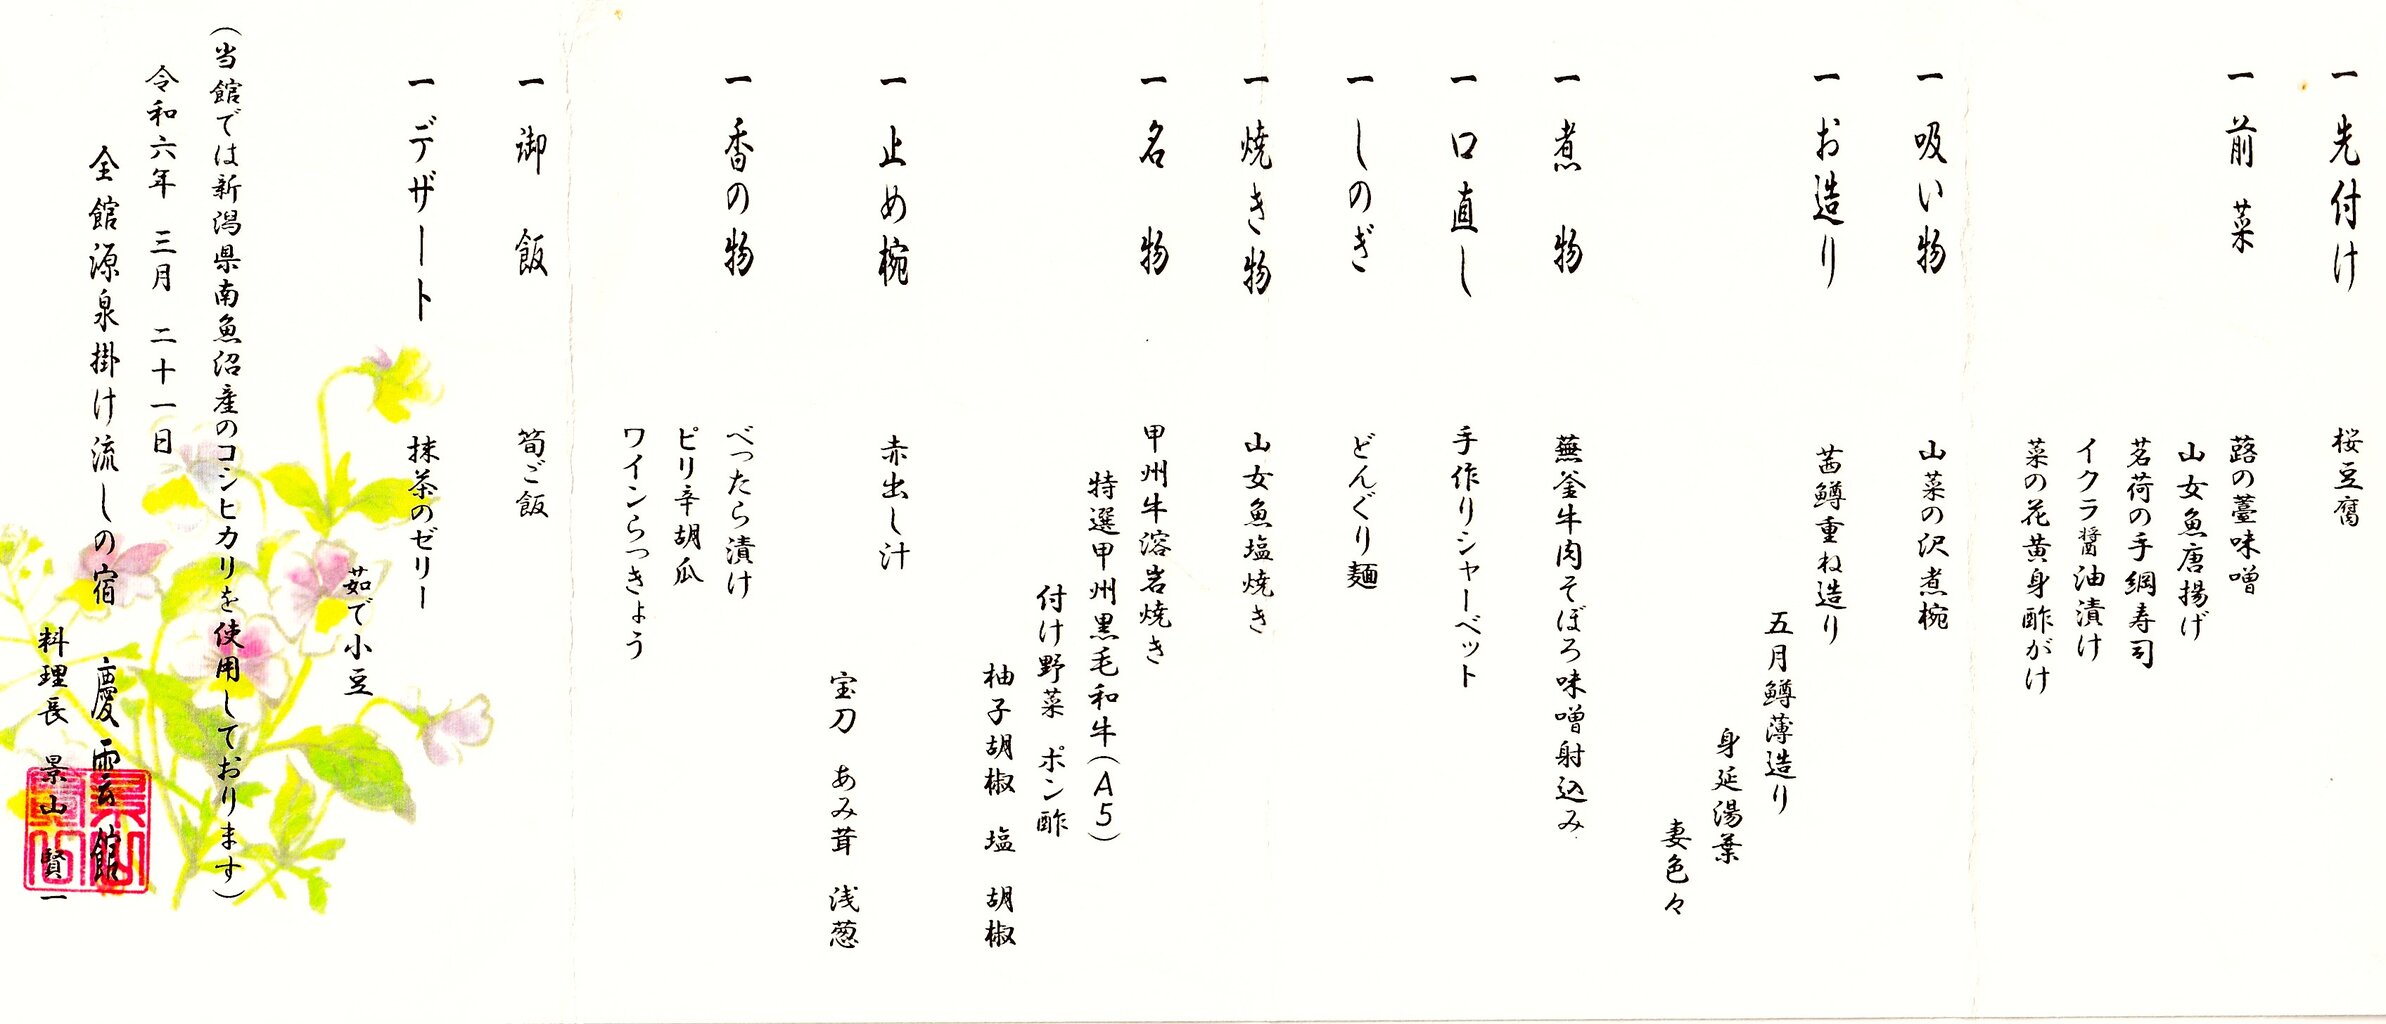 一 先付け 桜豆腐
一 前菜 蕗の薹味噌
山女魚唐揚げ
茗荷の手綱寿司
イクラ醤油漬け
菜の花黄身酢がけ
一 吸い物 山菜の沢煮椀
一 お造り 茜鱒重ね造り
五月鱒薄造り
身延湯葉
妻色々
一 煮物 蕪釜牛肉そぼろ味噌射込み
一 口直し 手作りシャーベット
一 しのぎ どんぐり麺
一 焼き物 山女魚塩焼き
一 名物 甲州牛溶岩焼き
特選甲州黒毛和牛(A5)
付け野菜 ポン酢
柚子胡椒 塩 胡椒
一 止め椀 赤出し汁
宝刀 あみ茸 浅葱
一 香の物 べったら漬け
ピリ辛胡瓜
ワインらっきょう
一 御飯 筍ご飯
一 デザート 抹茶のゼリー
茹で小豆
(当館では新潟県南魚沼産のコシヒカリを使用しております)
令和六年 三月 二十一日
全館源泉掛け流しの宿 慶雲館
料理長 景山 賢一